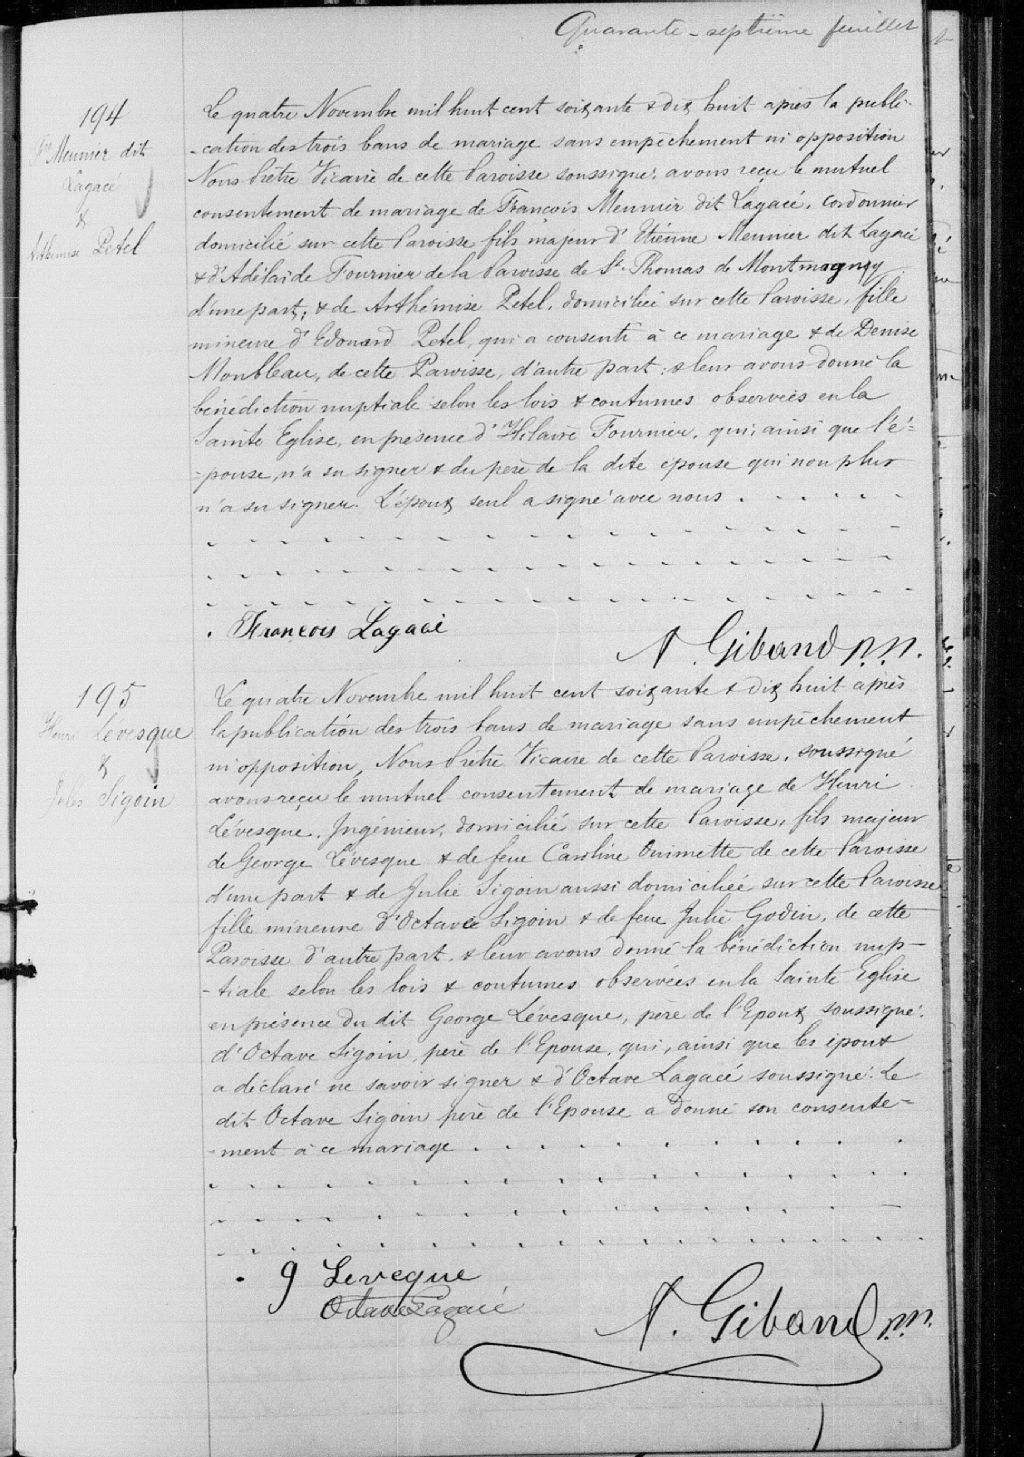 Quarante-septième feuillet
194
Meunier dit
Lagacé
&
Arthémise Petel
Le quatre Novembre mil huit cent soixante & dix huit après la publi-
-cation des trois bans de mariage sans empêchement ni opposition
Nous Prêtre Vicaire de cette Paroisse soussigné, avons reçu le mutuel
consentement de mariage de François Meunier dit Lagacé, Cordonnier
domicilié sur cette Paroisse fils majeur d'Etienne Meunier dit Lagacé
& d'Adélaïde Fournier de la Paroisse de St. Thomas de Montmagny
d'une part; & de Arthémise Petel, domiciliée sur cette Paroisse, fille
mineure d'Edouard Petel, qui a consenti à ce mariage & de Denise
Monbleau, de cette Paroisse, d'autre part: & leur avons donné la
bénédiction nuptiale selon les lois & coutumes observées en la
Sainte Eglise, en présence d'Hilaire Fournier, qui, ainsi que l'é-
-pouse, n'a su signer & du père de la dite épouse qui non plus
n'a su signer. L'époux seul a signé avec nous.
François Lagacé
A. Giband p.m.
195
Henri Lévesque
&
Julie Sigoin
Le quatre Novembre mil huit cent soixante & dix huit après
la publication des trois bans de mariage sans empêchement
ni opposition, Nous Prêtre Vicaire de cette Paroisse, soussigné
avons reçu le mutuel consentement de mariage de Henri
Lévesque, Ingénieur, domicilié sur cette Paroisse, fils majeur
de George Lévesque & de feue Caroline Ouimette de cette Paroisse
d'une part & de Julie Sigoin aussi domiciliée sur cette Paroisse
fille mineure d'Octave Sigoin & de feue Julie Godin, de cette
Paroisse d'autre part, & leur avons donné la bénédiction nup-
-tiale selon les lois & coutumes observées en la Sainte Eglise
en présence du dit George Lévesque, père de l'Epoux soussigné,
d'Octave Sigoin, père de l'Epouse, qui, ainsi que les époux
a déclaré ne savoir signer & d'Octave Lagacé soussigné. Le
dit Octave Sigoin père de l'Epouse a donné son consente-
-ment à ce mariage
g Leveque
Octave Lagacé
A. Giband p.m.